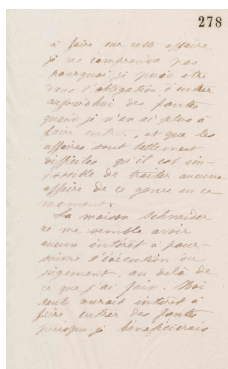 278
à faire sur cette affaire
je ne comprends pas
pourquoi je puis être
dans l'obligation d'entrer
aujourd'hui des fontes
quand je n'en ai plus à
faire entrer, et que les
affaires sont tellement
difficiles qu'il est im-
possible de traiter aucune
affaire de ce genre en ce
moment.
La maison Schneider
ne me semble avoir
aucun intérêt à pour-
suivre l'exécution du
jugement, au delà de
ce que j'ai fait. Moi
seul aurait intérêt à
faire entrer des fontes
puisque je bénéficierais